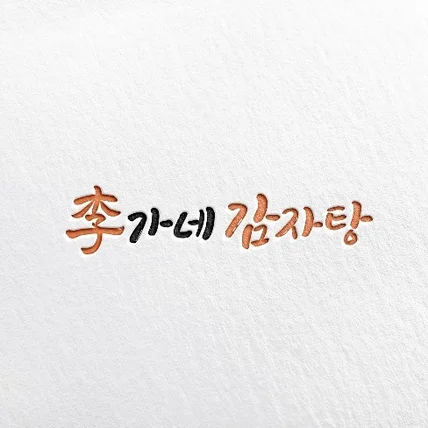 李가네 감자탕